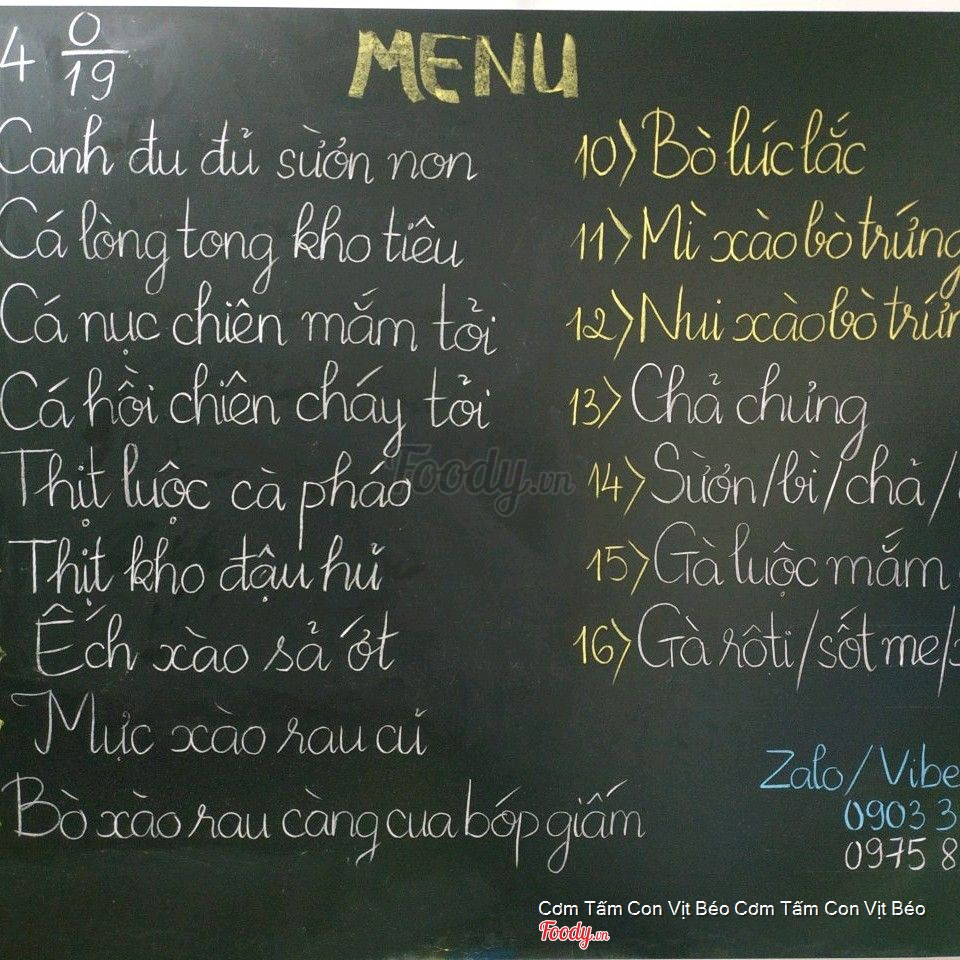 MENU
4 0/19
Canh đu đủ sườn non
Cá lòng tong kho tiêu
Cá nục chiên mắm tỏi
Cá hồi chiên cháy tỏi
Thịt luộc cà pháo
Thịt kho đậu hủ
Ếch xào sả ớt
Mực xào rau củ
Bò xào rau càng cua bóp giấm
10) Bò lúc lắc
11) Mì xào bò trứng
12) Nui xào bò trứn
13) Chả chưng
14) Sườn/bì/chả/
15) Gà luộc mắm
16) Gà rôti/sốt me/
Zalo/Vibe
0903 3
0975 8
Foody.vn
Cơm Tấm Con Vịt Béo Cơm Tấm Con Vịt Béo
Foody.vn